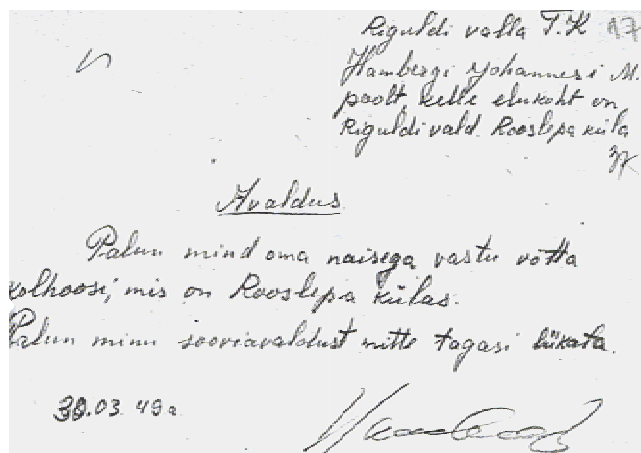 Riguldi valla T.K 17
Hambergi Johannes i M.
poolt, kelle elukoht on
Riguldi vald. Rooslepa küla
Avaldus
Palun mind oma naisega vastu võtta
kolhoosi, mis on Rooslepa külas.
Palun minu sooviavaldust mitte tagasi lükata.
30.03.49a